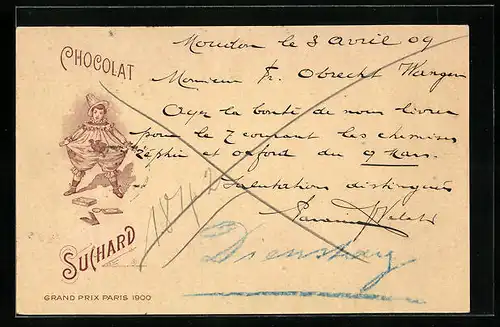 CHOCOLAT
SUCHARD
GRAND PRIX PARIS 1900
Moudon le 3 Avril 09
Monsieur Fr. Obrecht Wangen
Ayez la bonté de nous livrer
pour le 7 courant les chemises
zéphir et oxford du 9 Mars.
Salutations distinguées
1842
Dienstag